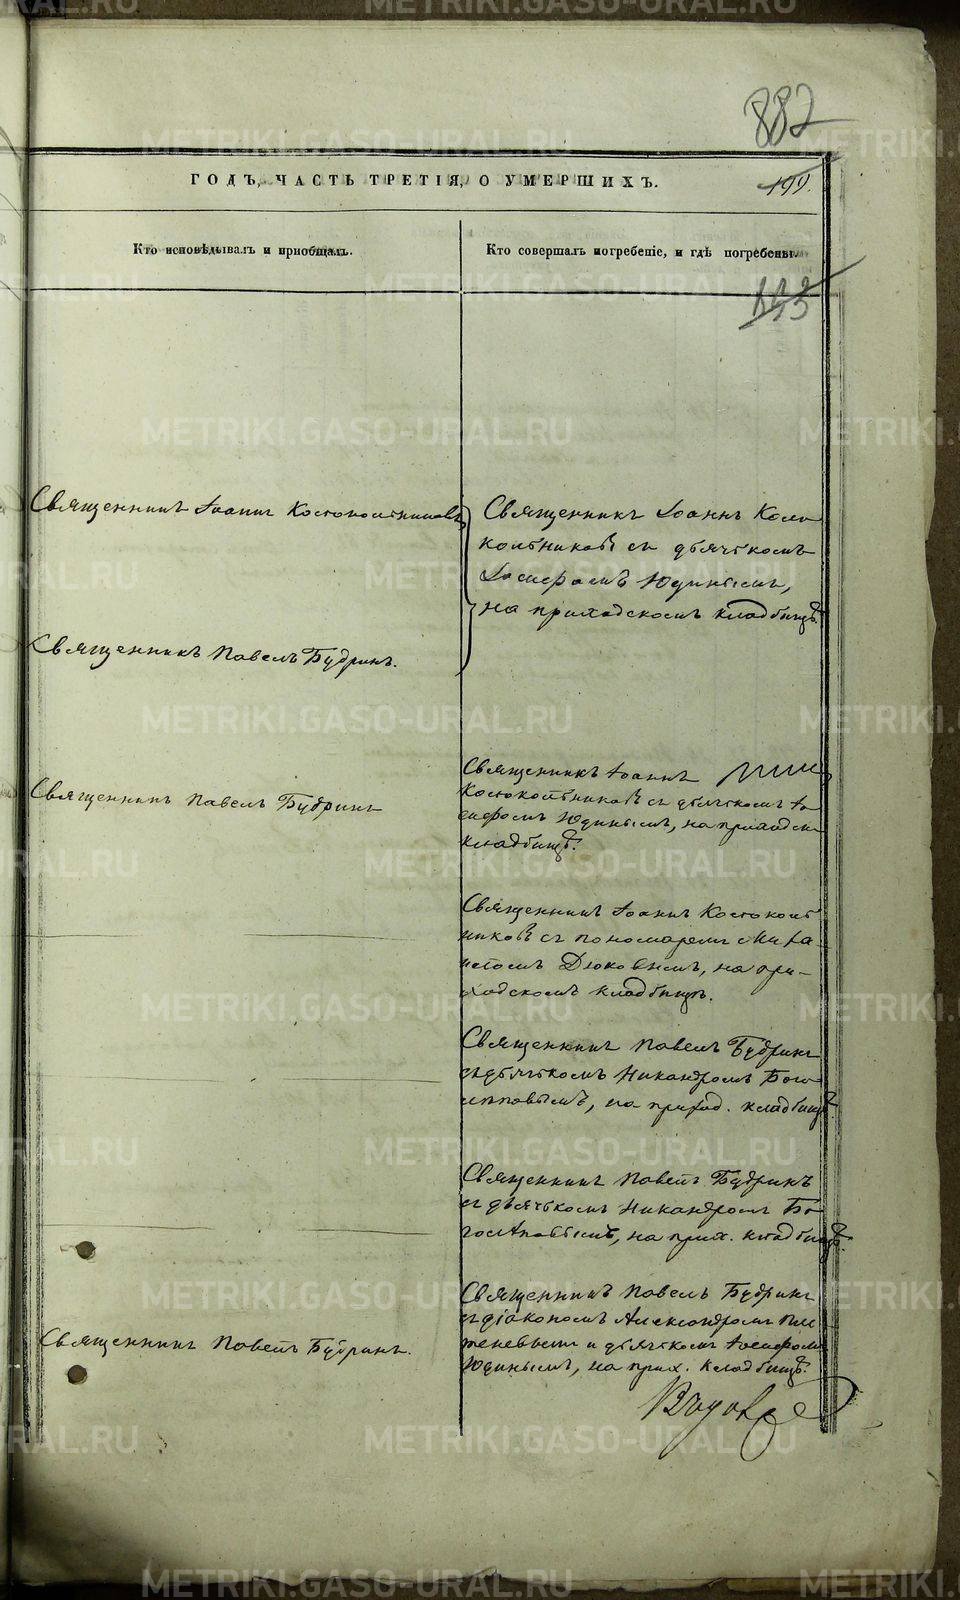 882
ГОДЪ, ЧАСТЬ ТРЕТІЯ, О УМЕРШИХЪ.
199.
Кто исповѣдывалъ и пріобщалъ.
Кто совершалъ погребеніе, и гдѣ погребены.
Священникъ Іоаннъ
Священникъ Павелъ Будринъ.
Священникъ Павелъ Будринъ
Священникъ Павелъ Будринъ.
Священникъ Іоаннъ
съ дьячкомъ
Іосифомъ Юдинымъ,
на приходскомъ кладбищѣ.
Священникъ Іоаннъ
съ дьячкомъ Іо-
сифомъ Юдинымъ, на приходск.
кладбищѣ.
Священникъ Іоаннъ
съ пономаремъ
Дюковымъ, на при-
ходскомъ кладбищѣ.
Священникъ Павелъ Будринъ
съ дьячкомъ Никандромъ
на приход. кладбищѣ
Священникъ Павелъ Будринъ
съ дьячкомъ Никандромъ
на прих. кладбищѣ.
Священникъ Павелъ Будринъ
съ діакономъ Александромъ
и дьячкомъ Іосифомъ
Юдинымъ, на прих. кладбищѣ.
METRIKI.GASO-URAL.RU